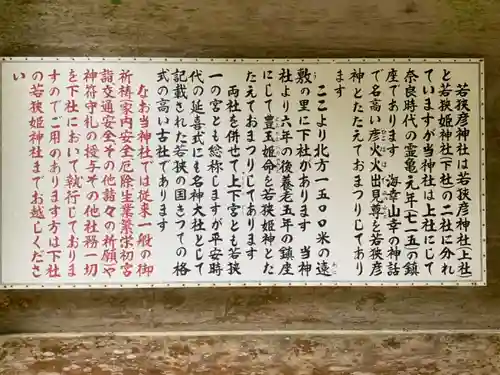 若狭彦神社は若狭彦神社(上社)
と若狭姫神社(下社)の二社に分れ
ていますが当神社は上社にして
奈良時代の霊亀元年(七一五)の鎮
座であります 海幸山幸の神話
で名高い彦火火出見尊を若狭彦
神とたたえておまつりしてあり
ます
ここより北方一五00米の遠
敷の里に下社があります 当神
社より六年の後養老五年の鎮座
にして豊玉姫命を若狭姫神とた
たえておまつりしてあります
両社を併せて上下宮とも若狭
一の宮とも総称しますが平安時
代の延喜式にも名神大社として
記載された若狭の国きつての格
式の高い古社であります
なお当神社では従来一般の御
祈祷家内安全厄除生業繁栄初宮
詣交通安全その他諸々の祈願や
神符守札の授与その他社務一切
を下社において執行しておりま
すのでご用のあります方は下社
の若狭姫神社までお越しくださ
い